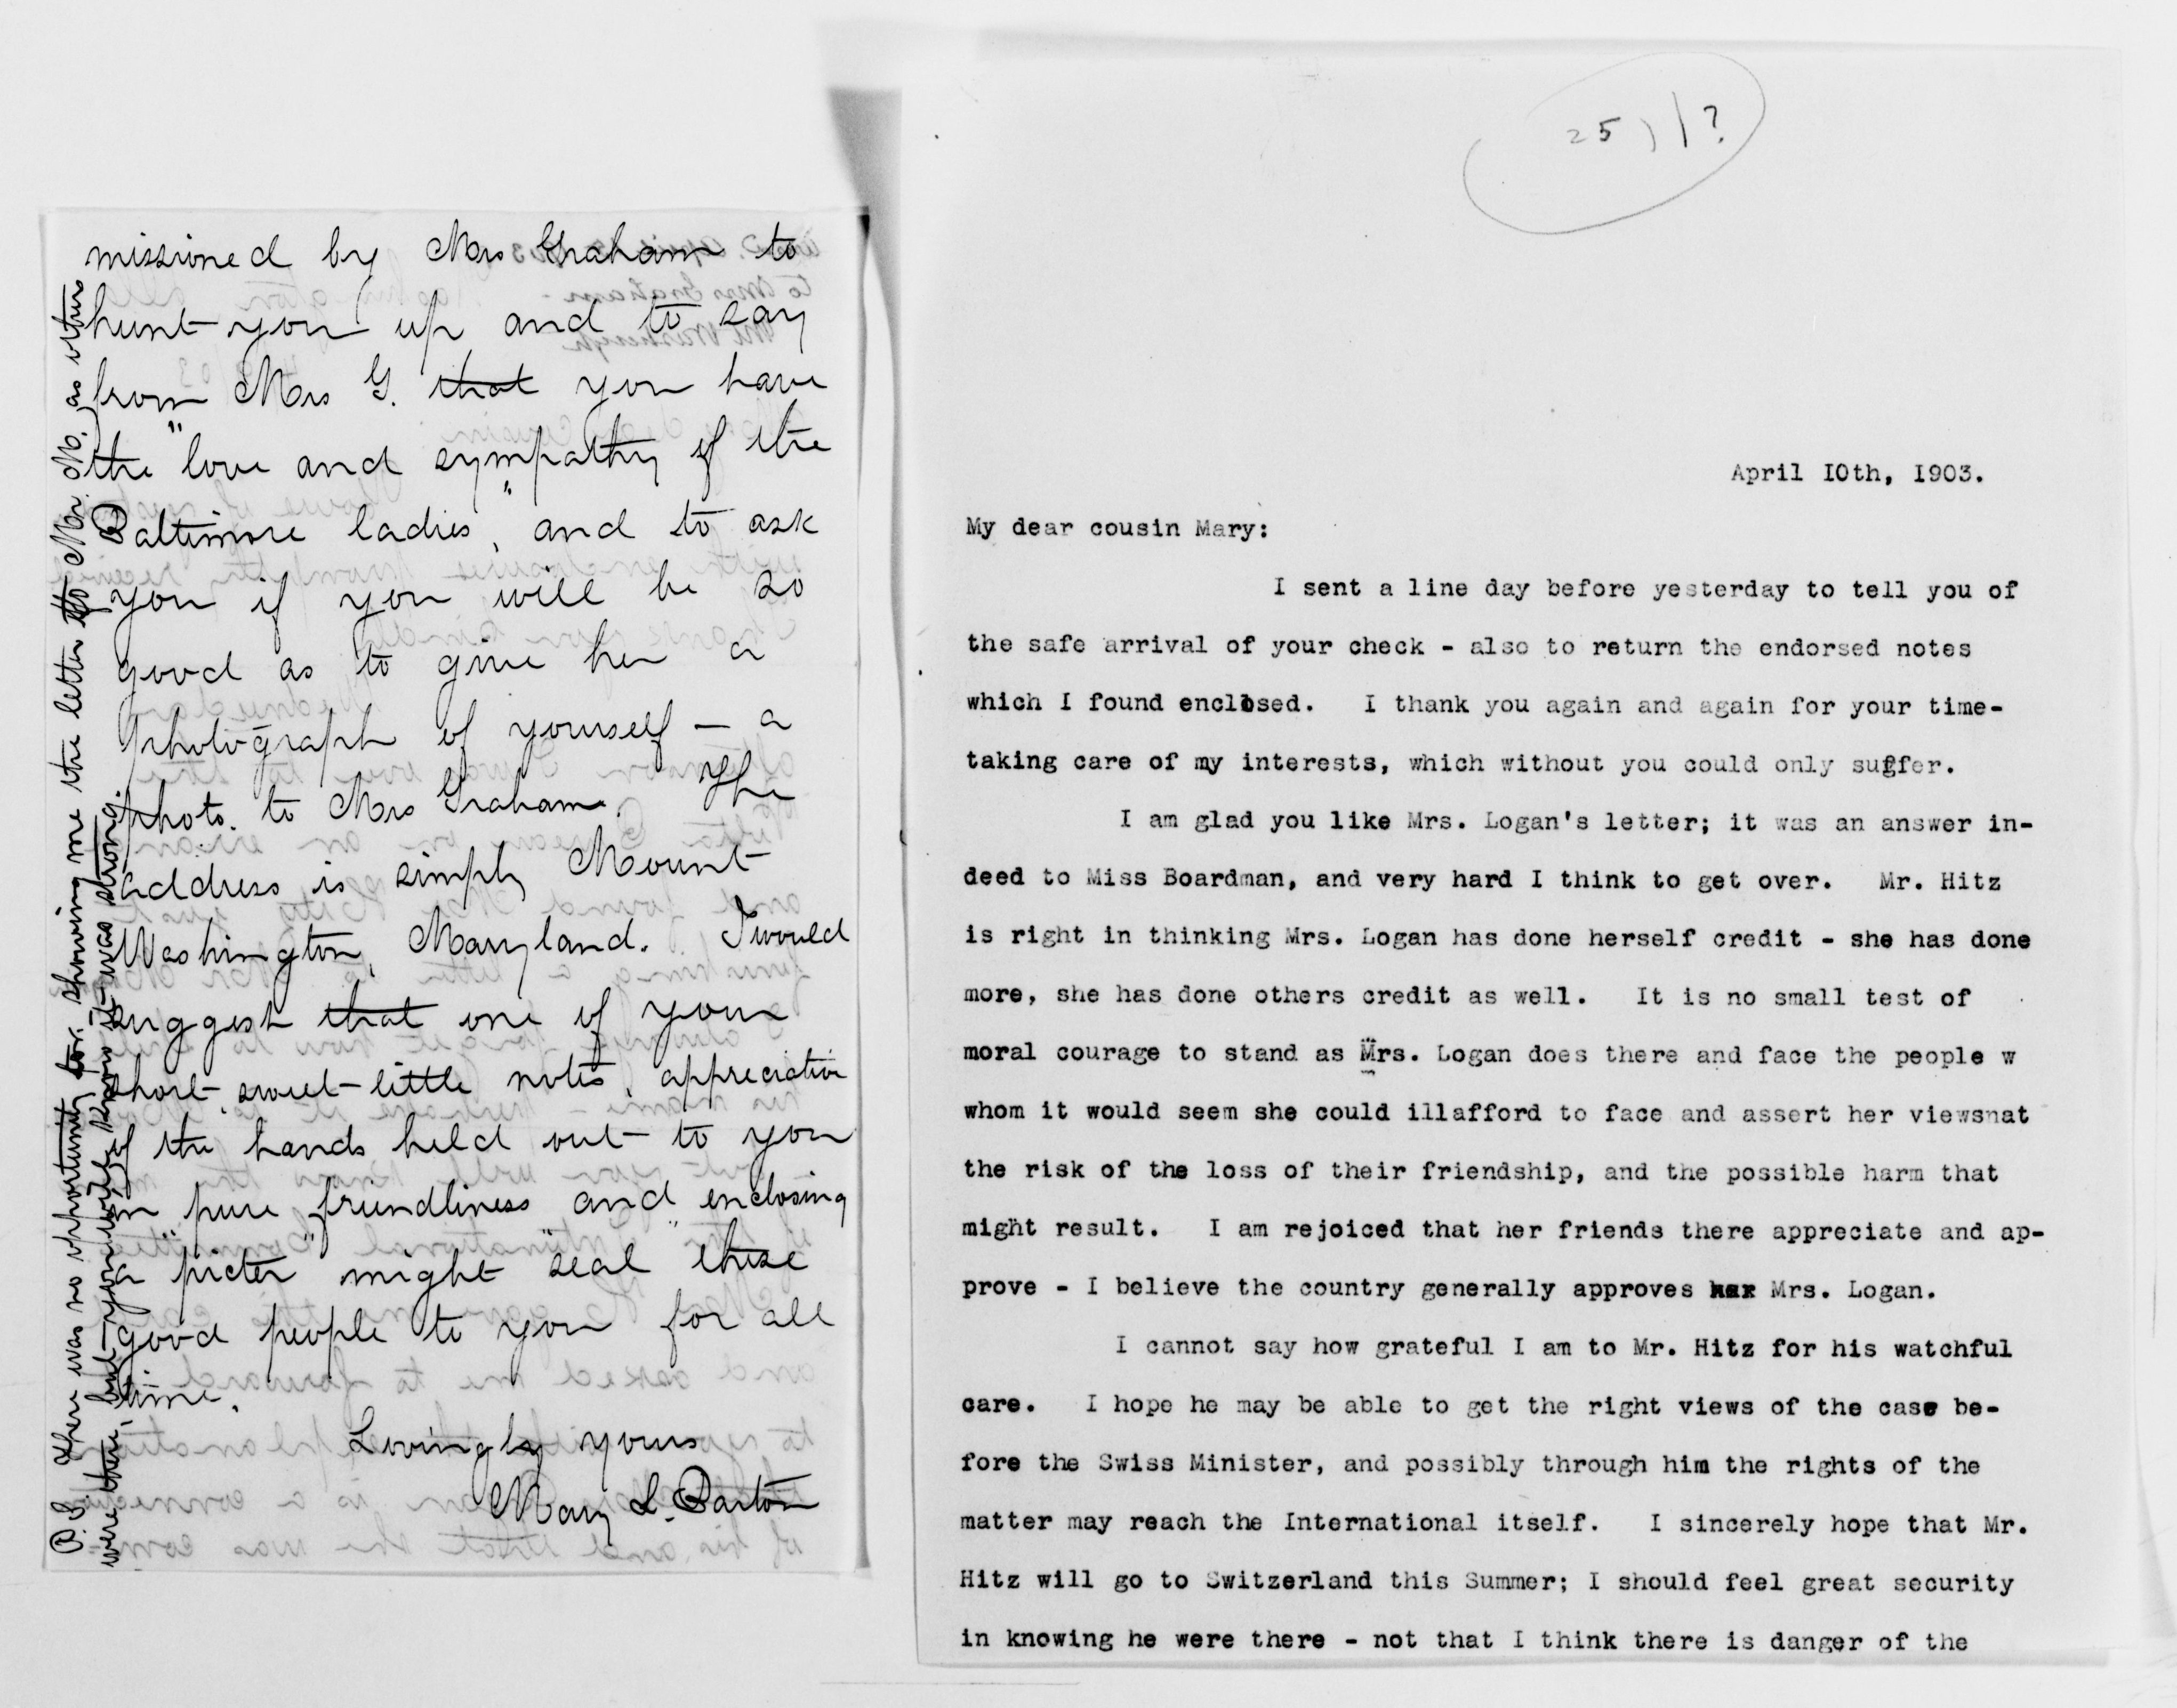 missioned by Mrs Graham to
hunt you up and to say
from Mrs G. that you have
the "love and sympathy of the
Baltimore ladies", and to ask
you if you will be so
good as to give her a
photograph of yourself — a
photo. to Mrs Graham. The
address is simply Mount
Washington, Maryland. I would
suggest that one of your
short, sweet little notes, appreciative
of the hands held out to you
in "pure friendliness" and enclosing
a "picter" might "seal" these
good people to you for all
time.
Lovingly yours
Mary L. Barton
P.S. There was no opportunity for showing me the letter to Mr. M., as others
were there, but you will know it was strong.
25 ) | ?
April 10th, 1903.
My dear cousin Mary:
I sent a line day before yesterday to tell you of
the safe arrival of your check - also to return the endorsed notes
which I found enclosed. I thank you again and again for your time-
taking care of my interests, which without you could only suffer.
I am glad you like Mrs. Logan's letter; it was an answer in-
deed to Miss Boardman, and very hard I think to get over. Mr. Hitz
is right in thinking Mrs. Logan has done herself credit - she has done
more, she has done others credit as well. It is no small test of
moral courage to stand as Mrs. Logan does there and face the people w
whom it would seem she could illafford to face and assert her viewsnat
the risk of the loss of their friendship, and the possible harm that
might result. I am rejoiced that her friends there appreciate and ap-
prove - I believe the country generally approves her Mrs. Logan.
I cannot say how grateful I am to Mr. Hitz for his watchful
care. I hope he may be able to get the right views of the case be-
fore the Swiss Minister, and possibly through him the rights of the
matter may reach the International itself. I sincerely hope that Mr.
Hitz will go to Switzerland this Summer; I should feel great security
in knowing he were there - not that I think there is danger of the